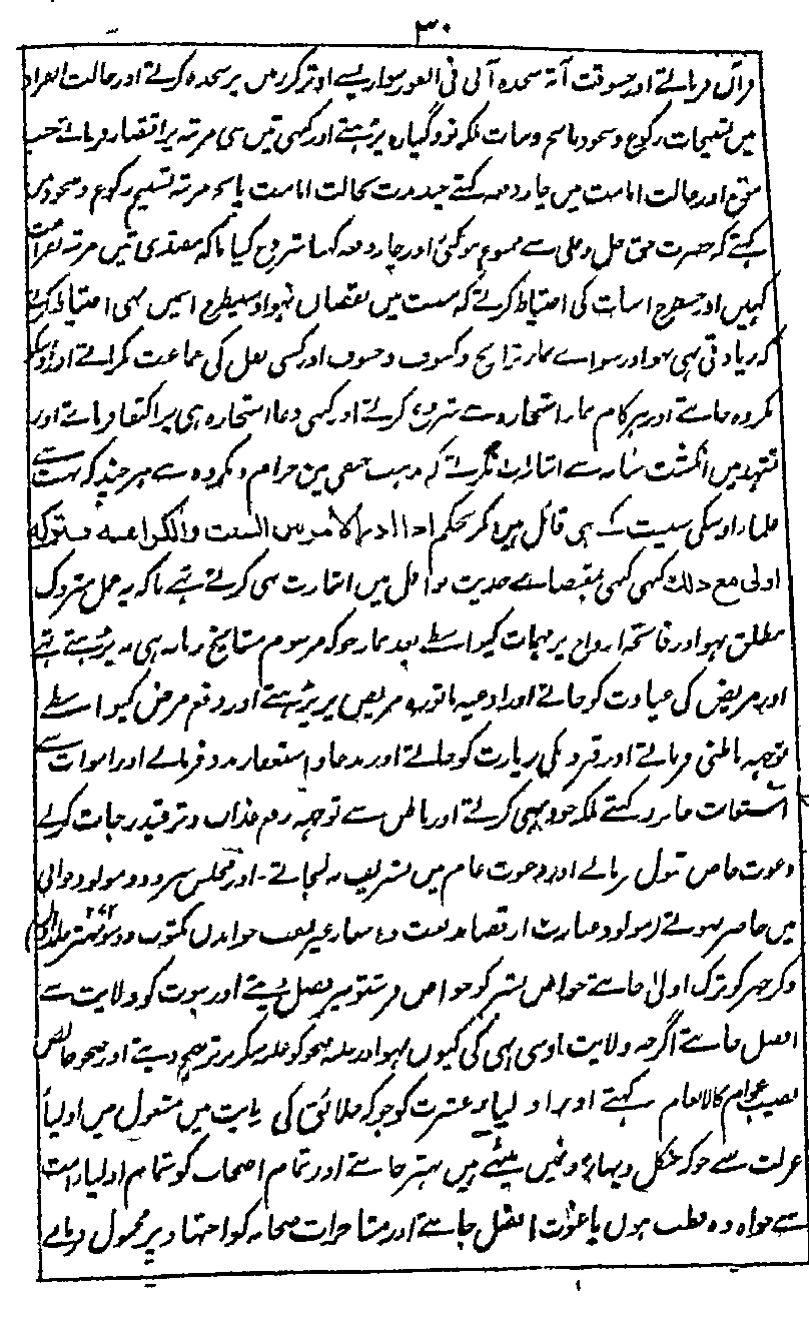 ۳۰
قرآن فرماتے اور جسوقت آیۃ سجدہ آتی فی الفور سواریسے اوترکر زمین پر سجدہ کرتے اور حالت انفراد
میں تسبیحات رکوع و سجود پانچ و سات بلکہ نو و گیاں پڑہتے اور کبھی تین ہی مرتبہ پر اقتصار فرماتے حسب
موقع اور حالت امامت میں چار دفعہ کہتے حضرت بحالت امامت پانچ مرتبہ تسبیح رکوع و سجود میں
کہتے کہ حضرت حق جل وعلی سے ممنوع ہوگئی اور چار دفعہ کہنا شروع کیا تاکہ مقتدی تین مرتبہ بفراغت
کہیں اور جسطرح اس بات کی احتیاط کرتے کہ سنت میں نقصان نہو اوسیطرح اسمیں بہی احتیاط کرتے
کہ زیادتی بہی نہو اور سواے نماز تراویح و کسوف و خسوف اور کسی نفل کی جماعت نکراتے اور اوسکو
مکروہ جانتے اور ہر کام نماز استخارہ سے شروع کرتے اور کبھی دعا استخارہ ہی پر اکتفا فرماتے اور
تشہد میں انگشت شہادت سے اشارت نکرتے کہ مذہب حنفی میں حرام و مکروہ ہے ہر چند کہ بہت سے
علما اوسکی سنیت کے بہی قائل ہیں مگر بحکم اذا دار الامر بین السنت والکراهیه فترکه
اولی مع ذلک کبھی کبھی بمقتضاے حدیث نوافل میں اشارت بھی کرتے تہے تاکہ یہ عمل متروک
مطلق نہو اور فاتحہ ارواح پر مہمات کیواسطے بعد نماز جوکہ مرسوم مشایخ زمانہ ہی نہ پڑہتے تہے
اور مریض کی عیادت کو جاتے اور ادعیہ ماثورہ مریض پر پڑہتے اور دفع مرض کیواسطے
توجہ باطنی فرماتے اور قبرونکی زیارت کو جاتے اور بدعا و استغفار مدد فرماتے اور اموات سے
استعانت جائز رکہتے بلکہ خود بہی کرتے اور باطن سے توجہ رفع عذاب و ترقی درجات کرتے
دعوت خاص قبول فرماتے اور دعوت عام میں تشریف نہ لیجاتے۔ اور مجلس سرود و مولود خوانی
میں حاضر نہوتے (مولود عبارت از قصاید نعت و اشعار غیر نعت خواندن مکتوب دوصد ۲۷۳ جلد اول)
ذکر جہر کو ترک اولی جانتے خواص بشر کو خواص فرشتونپر فضل دیتے اور نبوت کو ولایت سے
افضل جانتے اگرچہ ولایت اوسی نبی کی کیوں نہو اور غلبہ صحو کو غلبہ سکر پر ترجیح دیتے اور صحو خالص
نصیب عوام کالانعام کہتے اور اولیاء عشرت کو جوکہ خلائق کی ہدایت میں مشغول ہیں اولیاء
عزلت سے جوکہ جنگل و پہاڑونمیں بیٹہے ہیں بہتر جانتے اور تمام اصحاب کو تمام اولیاء امت
سے خواہ وہ قطب ہوں یا غوث افضل جانتے اور مشاجرات صحابہ کو اجتہاد پر محمول فرماتے